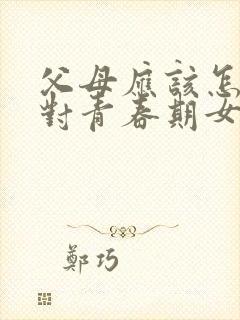 父母應該怎
對青春期女
鄭巧